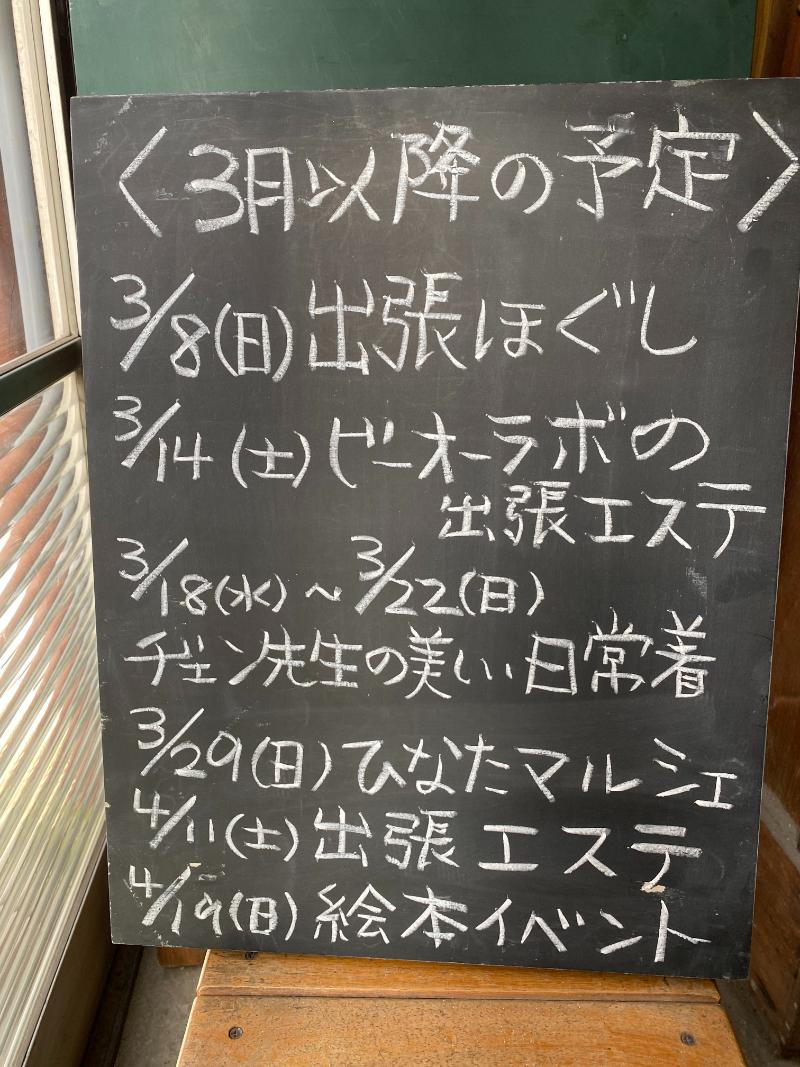 〈3月以降の予定〉
3/8(日)出張ほぐし
3/14(土)ビーオーラボの
出張エステ
3/18(水)~3/22(日)
チェン先生の美しい日常着
3/29(日)ひなたマルシェ
4/11(土)出張エステ
4/19(日)絵本イベント